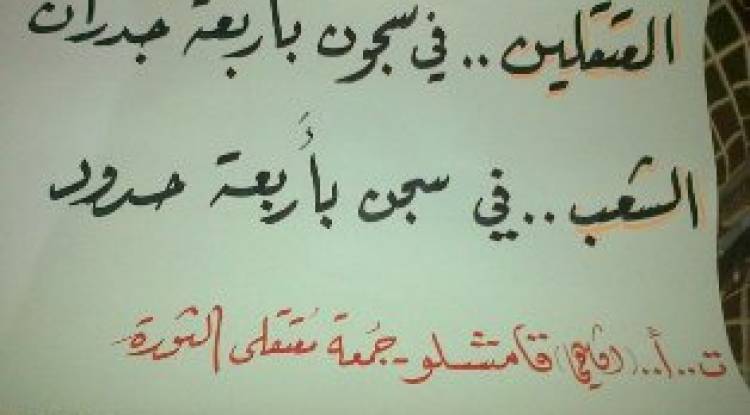 المعتقلين .. في سجون بأربعة جدران
الشعب .. في سجن بأَربعة حدود
ت..أ.. قامشلو - جُمعة مُعتقلي الثورة